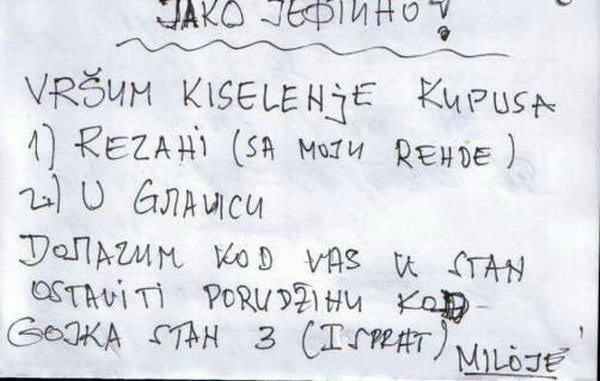 JAKO JEФTINO!
VRŠUM KISELENJE KUPUSA
1) REZANI (SA MOJU REHDE)
2) U GЛAVICU
DOЛAZUM KOD VAS U STAN
OSTAVITI PORUDŽINU KOD
GOJKA STAN 3 (ISPRAT) MILOJE